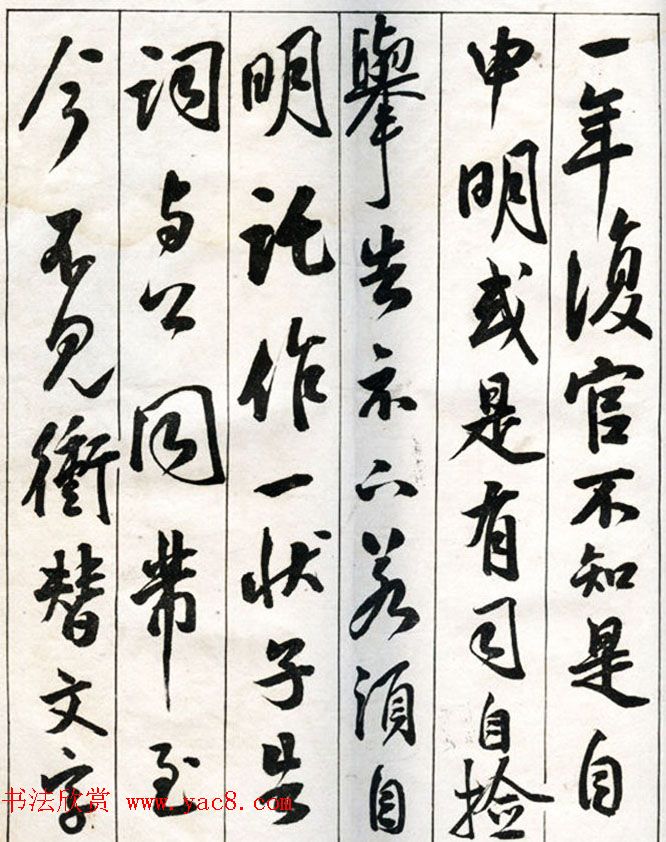 一年復官不知是自
申明或是有司自捡
舉告示下若須自
明託作一状子告
詞与公同帶至
今不見衝替文字
书法欣赏 www.yac8.com